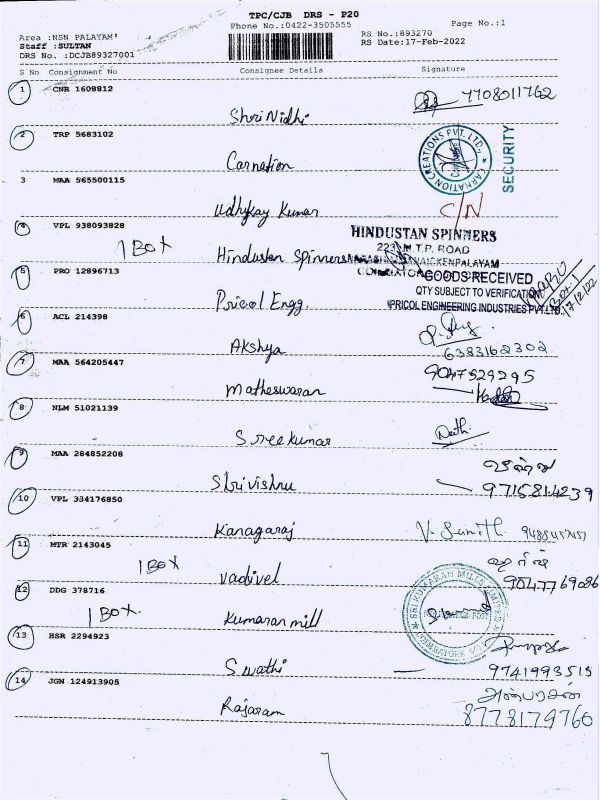 TPC/CJB DRS - P20
Phone No.:0422-3505555
Page No.:1
Area :NSN PALAYAM'
RS No.:893270
Staff :SULTAN
RS Date:17-Feb-2022
DRS No. :DCJB89327001
S No Consignment No Consignee Details Signature
1 CNR 1608812
Shri Nidhi
7708011762
2 TRP 5683102
Carnation
CARNATION CREATIONS PVT. LTD.,
SECURITY
3 MAA 565500115
Udhykay Kumar
C/N
4 VPL 938093828
1 Box
Hindustan Spinners
HINDUSTAN SPINNERS
223, M.T.P. ROAD
5 PRO 12896713
Pricol Engg.
GOODS RECEIVED
QTY SUBJECT TO VERIFICATION
PRICOL ENGINEERING INDUSTRIES PVT.LTD
6 ACL 214398
Akshya
6383162302
7 MAA 564205447
Matheswaran
9047529295
8 NLM 51021139
Sreekumar
9 MAA 284852208
Shrivishnu
9715814239
10 VPL 334176850
Kanagaraj
11 MTR 2143045
1 Box
Vadivel
9047769086
12 DDG 378716
1 Box
Kumaran mill
13 HSR 2294923
Swathi
9741993515
14 JGN 124913905
Rajaram
8778179760